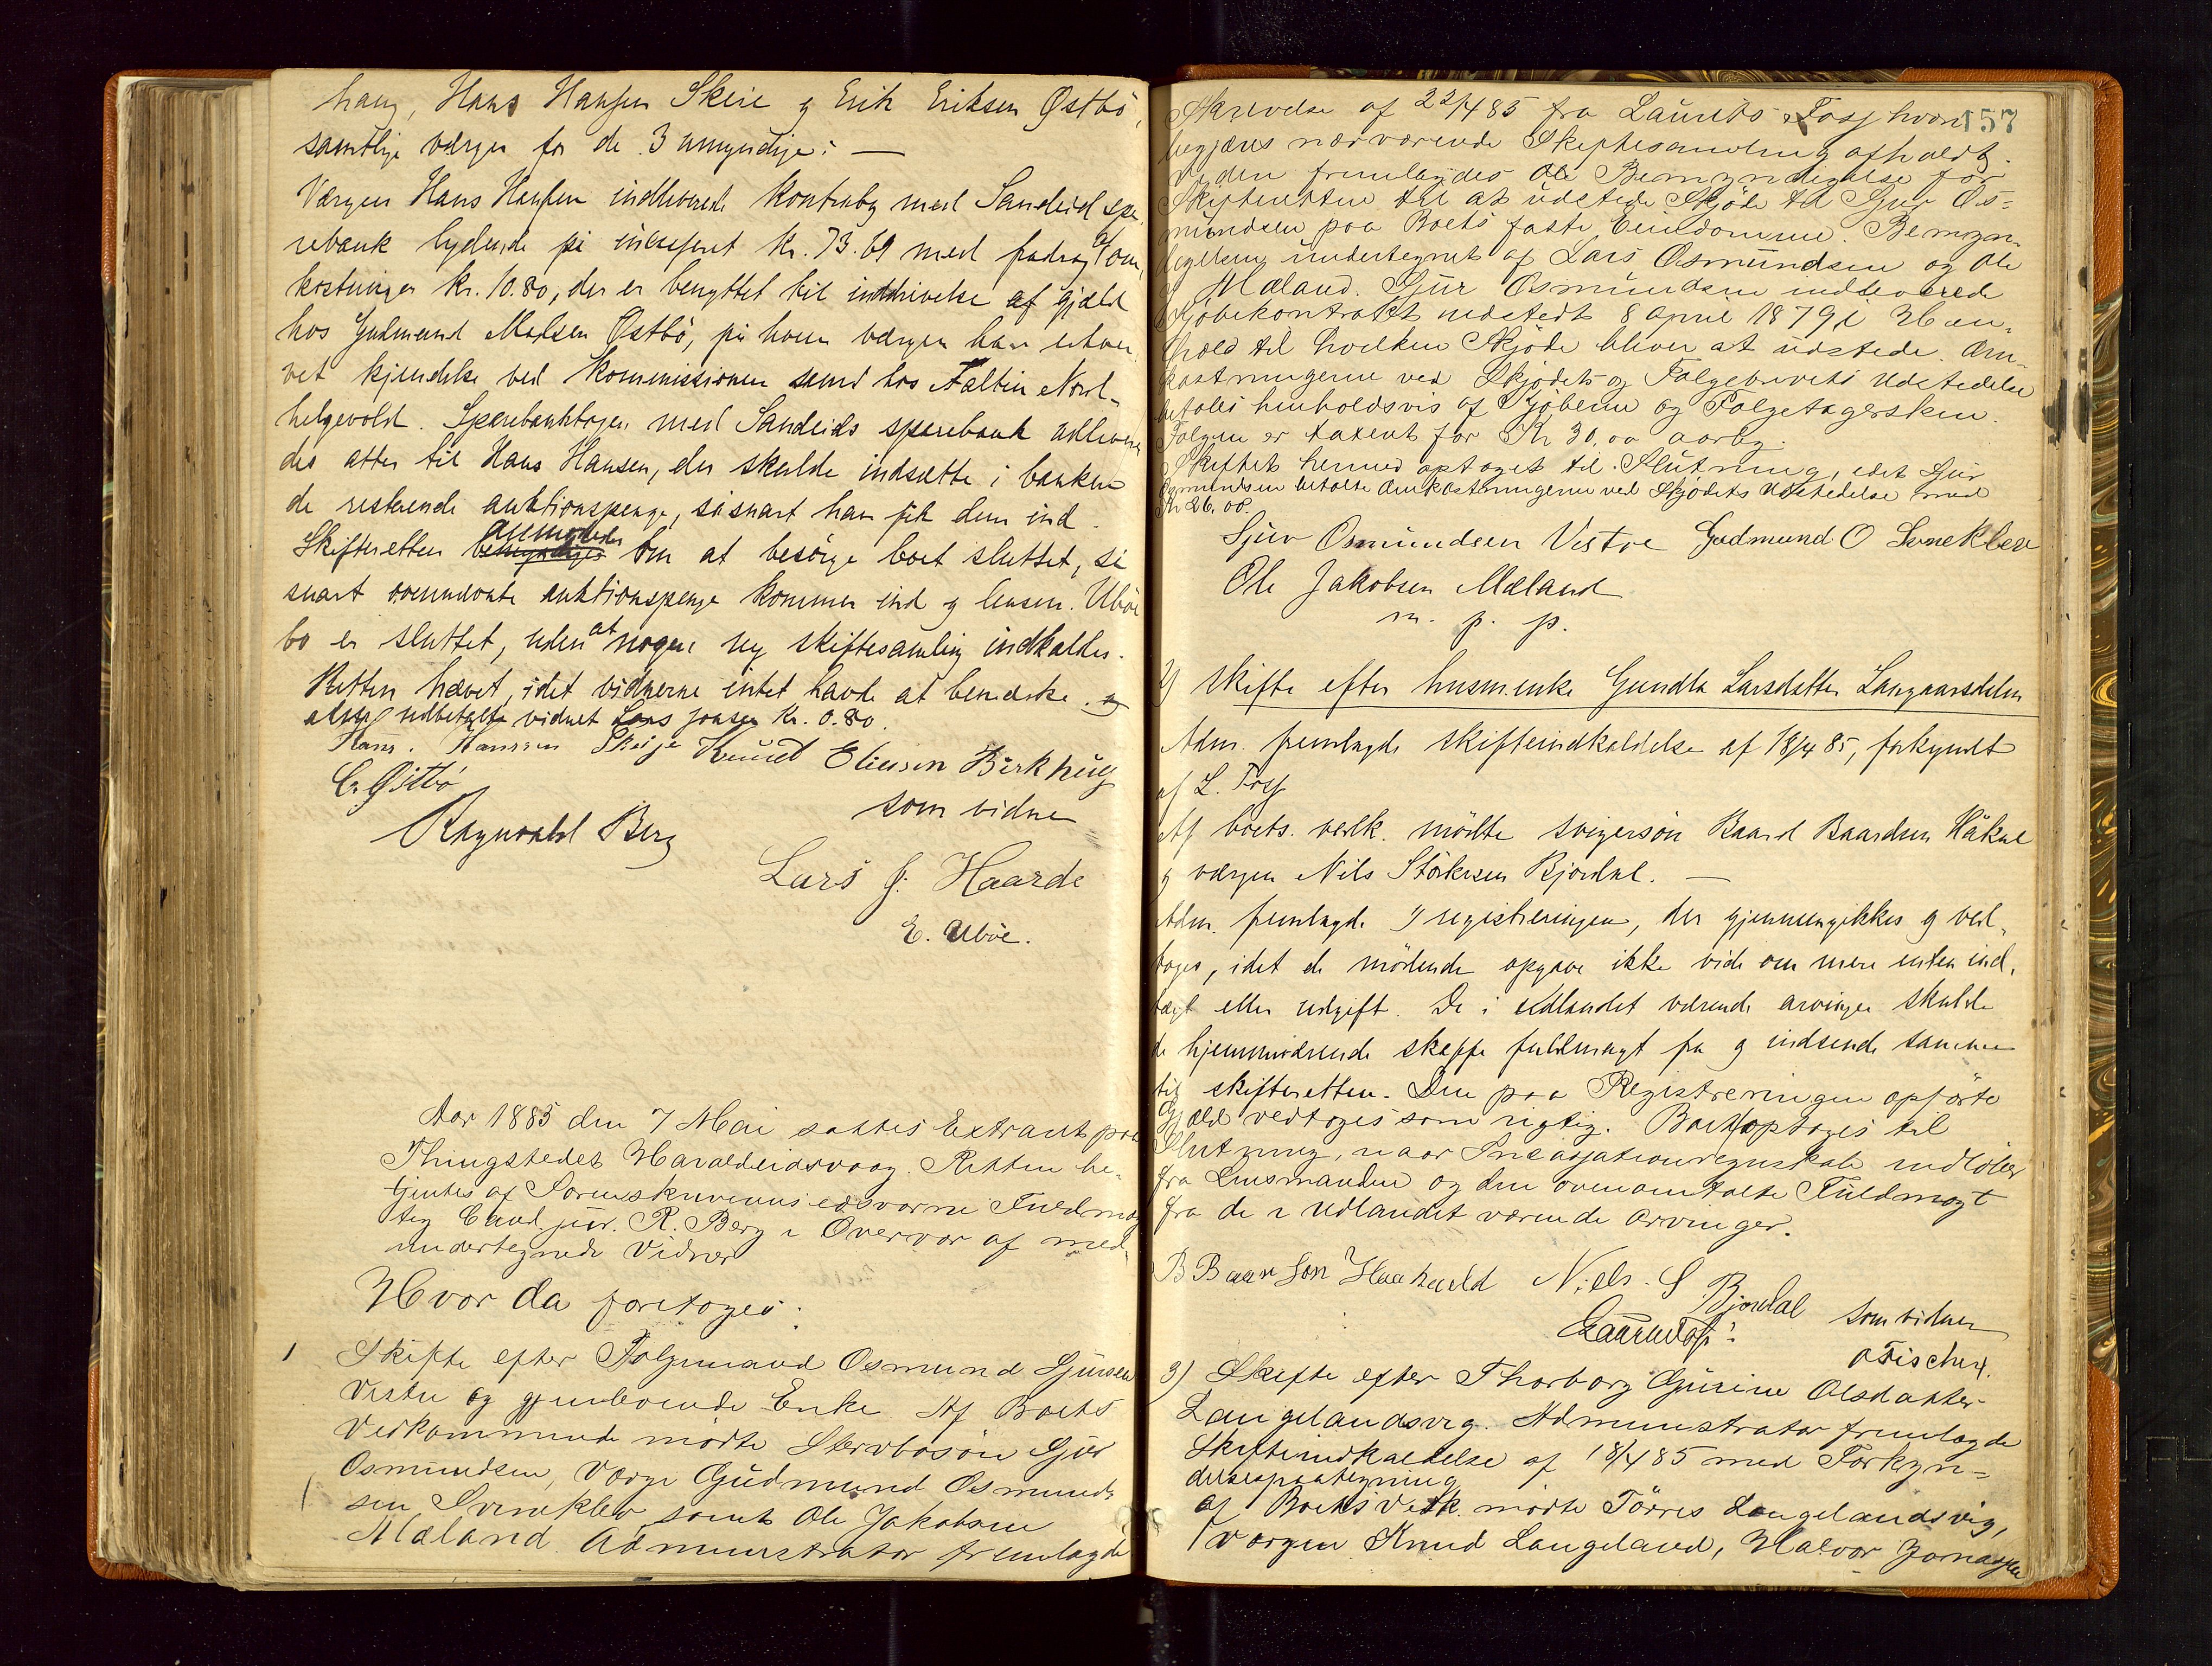 haug, Hans Hansen Skeie g Erik Eriksen Østbö,
samtlige værger for de 3 umyndige: —
Værgen Hans Hansen indleverede kontrabog med Sandeid spa-
rebank lydende på incasseret kr. 73.69 med fradrag af om-
kostninger kr. 10.80, der er benyttet til inddrivelse af gjæld
hos Gudmund Madsen Østbö, på hvem værgen har erhver-
vet kjendelse ved kommissionen samt hos Falten Nord-
helgevold. Sparebankbogen med Sandeids sparebank udlevere-
des atter til Hans Hansen, der skulde indsætte i banken
de resterende auktionspenge, såsnart han fik dem ind.
anmodedes
Skifteretten bemyndiges om at besörge boet sluttet, så
snart ovennævnte auktionspenge kommer ind g lensm. Uböe
bo er sluttet, uden at nogen ny skiftesamling indkaldes.
Retten hævet, idet vidnerne intet havde at bemærke. g
udbetalte vidnet Lars Jonsen kr. 0.80.
Hans. Hanssen Skeije Knud Eliesen Birkhaug
E. Østbö som vidne
Ragnvald Berg
Lars J. Haarde
E. Uböe.
Aar 1885 den 7 Mai sattes Extraret paa
Thingstedet Haraldseidsvaag. Retten be-
tjentes af Sorenskriverens edsvorne Fuldmæg
tig Cand. jur. R. Berg i Overvær af med-
undertegnede Vidner
Hvor da foretoges:
1 Skifte efter Folgemand Osmund Sjursen
Vestre og gjenlevende Enke. Af Boets
Vedkommende mödte Stervbosön Sjur
Osmundsen, Værge Gudmund Osmund-
sen Svineklev samt Ole Jakobsen
Mæland. Administrator fremlagde
157
Skrivelse af 22/4 85 fra Laurits Foss hvori
begjæres nærværende Skiftesamling afholdt.
Viden fremlagdes Bemyndigelse for
Skifteretten til at udstede Skjöde til Sjur Os-
mundsen paa Boets faste Eiendomme. Bemyn-
digelsen undertegnet af Lars Osmundsen og Ole
Mæland. Sjur Osmundsen indleverede
Kjöbekontrakt udstedt 8 April 1879, i Hen-
hold til hvilken Skjöde bliver at udstede. Om-
kostningerne ved Skjödets og Folgebrevets Udstedelse
betales henholdsvis af Kjöberen og Folgetagersken.
Folgen er taxeret for Kr 30,00 aarlig.
Skiftet hermed optaget til Slutning, idet Sjur
Osmundsen betalte Omkostningerne ved Skjödets Udstedelse med
Kr 26.00.
Sjur Osmundsen Vestre Gudmund O Svineklev
Ole Jakobsen Mæland
m. p. p.
2) Skifte efter husmenke Gundla Larsdatter Langaarsdalen
Adm. fremlagde skifteindkaldelse af 18/4 85, forkyndt
af L. Foss
Af boets vedk. mödte svigersön Baard Baardsen Håkul
g værgen Nils Störkersen Bjordal. —
Adm. fremlagde registreringen, der gjennemgikkes g ved-
toges, idet de mödende opgave ikke vide om mere enten ind-
tægt eller udgift. De i udlandet værende arvinger skulde
de hjemmeværende skaffe fuldmagt fra g indsende samme
til skifteretten. Den paa Registreringen opförte
Gjæld vedtoges som rigtig. Boet optoges til
Slutning, naar Incassationsregnskab indlöber
fra Lensmanden og den ovenomtalte Fuldmagt
fra de i Udlandet værende Arvinger.
B Baarson Haahuld Niels. S Bjordal som vidner
Laurits Foss
O Fischer.
3) Skifte efter Thorborg Gurine Olsdatter
Langelandsvig. Administrator fremlagde
Skifteindkaldelse af 18/4 85 med Forkyn-
delsespaategning
af Boets Vedk. mödte Törres Langelandsvig,
Værgen Knud Langeland, Halvor Jonassen